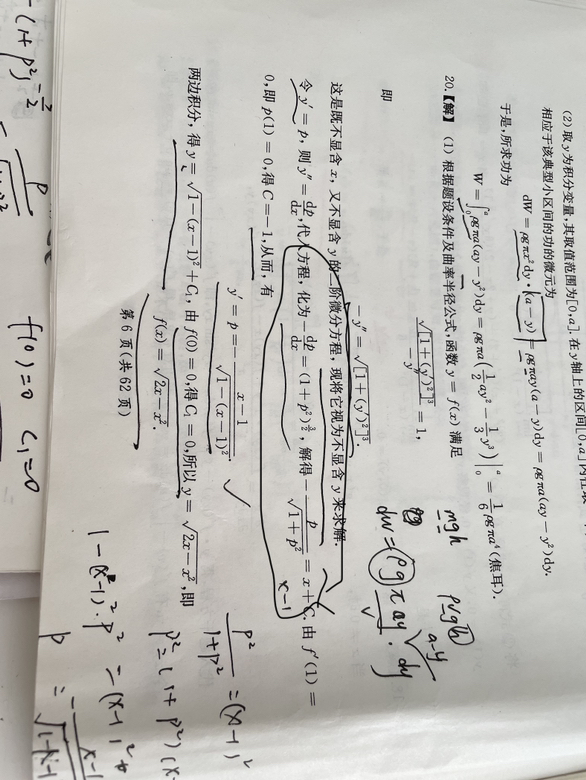 (2) 取 y 为积分变量,其取值范围为[0,a]. 在 y 轴上的区间[0,a]内任取
相应于该典型小区间的功的微元为
dW = ρgπx²dy · (a − y) = ρgπay(a − y)dy = ρgπa(ay − y²)dy.
于是,所求功为
W = ∫₀ᵃ ρgπa(ay − y²)dy = ρgπa(1/2 ay² − 1/3 y³)|₀ᵃ = 1/6 ρgπa⁴(焦耳).
20.【解】 (1) 根据题设条件及曲率半径公式,函数 y = f(x) 满足
√([1 + (y')²]³) / −y'' = 1,
即
−y'' = √([1 + (y')²]³).
这是既不显含 x,又不显含 y 的二阶微分方程,现将它视为不显含 y 来求解.
令 y' = p, 则 y'' = dp/dx,代入方程,化为 −dp/dx = (1 + p²)^(3/2), 解得 −p/√(1 + p²) = x + C. 由 f'(1) =
0,即 p(1) = 0,得 C = −1,从而,有
y' = p = −(x − 1)/√(1 − (x − 1)²).
两边积分, 得 y = √(1 − (x − 1)²) + C₁, 由 f(0) = 0,得 C₁ = 0,所以 y = √(2x − x²),即
f(x) = √(2x − x²).
第 6 页(共 62 页)
mgh
ρVgh
a−y
dw = ρgπay·dy
x−1
p²/(1+p²) = (x−1)²
p² = (1+p²)(x-
p² = (x−1)²
p = −(x−1
(1+p²)
f(0)=0 C₁=0